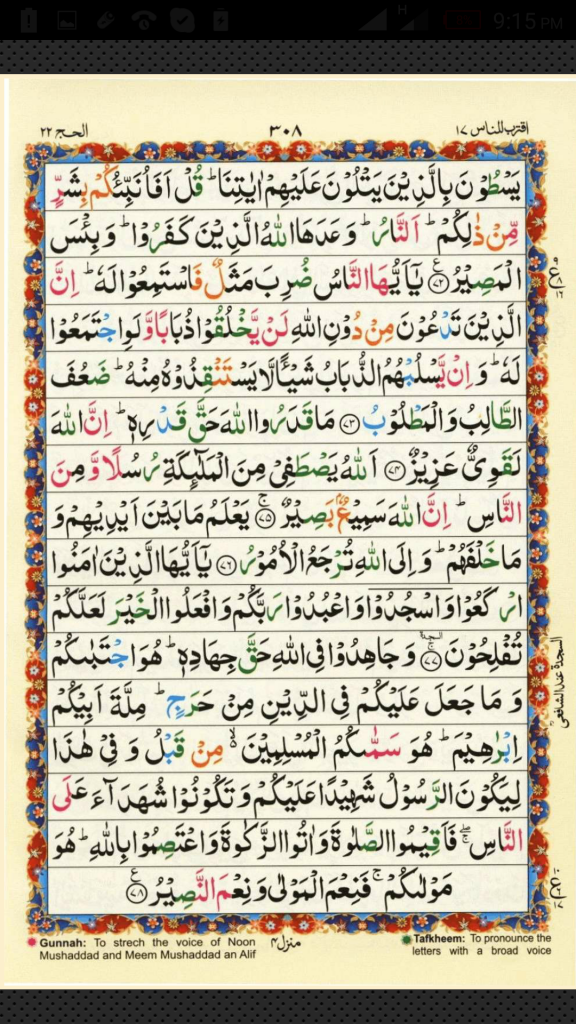 H
9:15 PM
اقترب للناس ١٧
٣٠٨
الحج ٢٢
يَسْطُوْنَ بِالَّذِيْنَ يَتْلُوْنَ عَلَيْهِمْ اٰيٰتِنَا ؕ قُلْ اَفَاُنَبِّئُكُمْ بِشَرٍّ
مِّنْ ذٰلِكُمْ ؕ اَلنَّارُ ؕ وَعَدَهَا اللّٰهُ الَّذِيْنَ كَفَرُوْا ؕ وَبِئْسَ
الْمَصِيْرُ ﴿۷۲﴾ يٰۤاَيُّهَا النَّاسُ ضُرِبَ مَثَلٌ فَاسْتَمِعُوْا لَهٗ ؕ اِنَّ
الَّذِيْنَ تَدْعُوْنَ مِنْ دُوْنِ اللّٰهِ لَنْ يَّخْلُقُوْا ذُبَابًا وَّلَوِ اجْتَمَعُوْا
لَهٗ ؕ وَاِنْ يَّسْلُبْهُمُ الذُّبَابُ شَيْئًا لَّا يَسْتَنْقِذُوْهُ مِنْهُ ؕ ضَعُفَ
الطَّالِبُ وَالْمَطْلُوْبُ ﴿۷۳﴾ مَا قَدَرُوا اللّٰهَ حَقَّ قَدْرِهٖ ؕ اِنَّ اللّٰهَ
لَقَوِىٌّ عَزِيْزٌ ﴿۷۴﴾ اَللّٰهُ يَصْطَفِىْ مِنَ الْمَلٰٓئِكَةِ رُسُلًا وَّمِنَ
النَّاسِ ؕ اِنَّ اللّٰهَ سَمِيْعٌۢ بَصِيْرٌ ﴿۷۵﴾ ۚ يَعْلَمُ مَا بَيْنَ اَيْدِيْهِمْ وَ
مَا خَلْفَهُمْ ؕ وَاِلَى اللّٰهِ تُرْجَعُ الْاُمُوْرُ ﴿۷۶﴾ يٰۤاَيُّهَا الَّذِيْنَ اٰمَنُوا
ارْكَعُوْا وَاسْجُدُوْا وَاعْبُدُوْا رَبَّكُمْ وَافْعَلُوا الْخَيْرَ لَعَلَّكُمْ
تُفْلِحُوْنَ ﴿۷۷﴾ ۚ وَجَاهِدُوْا فِى اللّٰهِ حَقَّ جِهَادِهٖ ؕ هُوَ اجْتَبٰىكُمْ
وَمَا جَعَلَ عَلَيْكُمْ فِى الدِّيْنِ مِنْ حَرَجٍ ؕ مِلَّةَ اَبِيْكُمْ
اِبْرٰهِيْمَ ؕ هُوَ سَمّٰىكُمُ الْمُسْلِمِيْنَ ۙ مِنْ قَبْلُ وَفِىْ هٰذَا
لِيَكُوْنَ الرَّسُوْلُ شَهِيْدًا عَلَيْكُمْ وَتَكُوْنُوْا شُهَدَآءَ عَلَى
النَّاسِ ۖۚ فَاَقِيْمُوا الصَّلٰوةَ وَاٰتُوا الزَّكٰوةَ وَاعْتَصِمُوْا بِاللّٰهِ ؕ هُوَ
مَوْلٰىكُمْ ۚ فَنِعْمَ الْمَوْلٰى وَنِعْمَ النَّصِيْرُ ﴿۷۸﴾
السجدة عند الشافعي
Gunnah: To strech the voice of Noon
Mushaddad and Meem Mushaddad an Alif
منزل ۴
Tafkheem: To pronounce the
letters with a broad voice